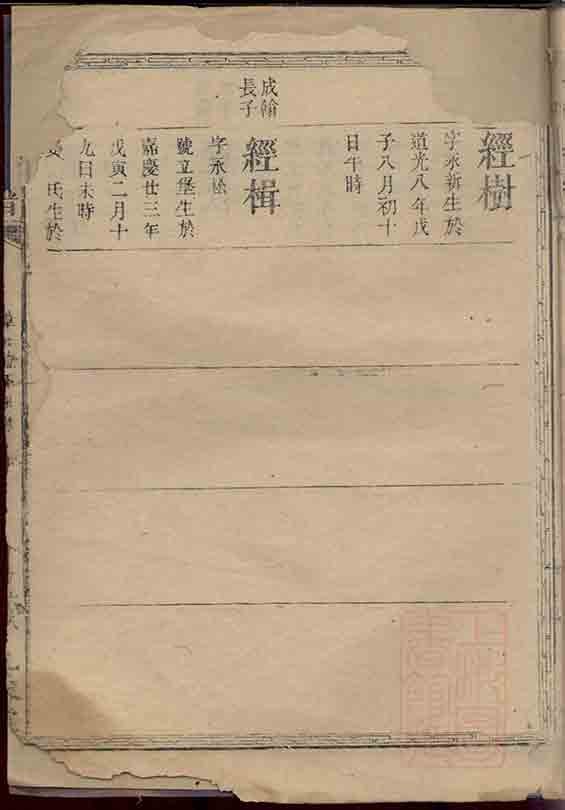 經樹
字永新生於
道光八年戊
子八月初十
日午時
成翰
長子
經楫
字永松
號立堡生於
嘉慶廿三年
戊寅二月十
九日未時
氏生於
上海圖
書館